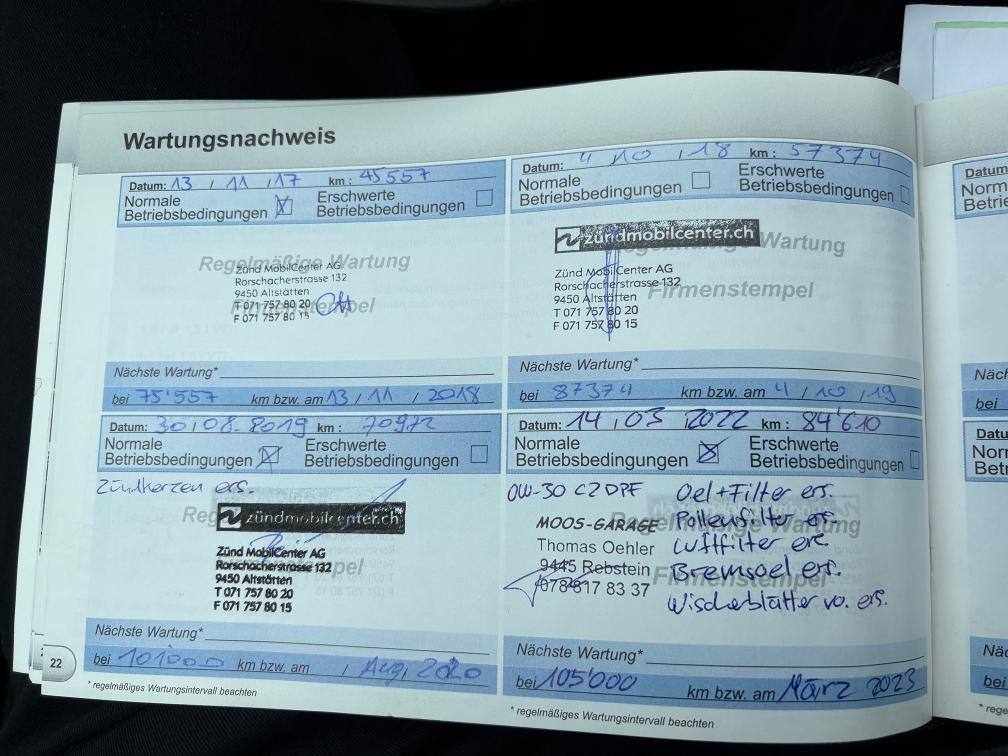 Wartungsnachweis
Datum: 13 / 11 / 17 km: 45557
Normale Betriebsbedingungen ☒ Erschwerte Betriebsbedingungen ☐
Regelmäßige Wartung
Firmenstempel
Zünd MobilCenter AG
Rorschacherstrasse 132
9450 Altstätten
T 071 757 80 20
F 071 757 80 15
Nächste Wartung*
bei 75'557 km bzw. am 13 / 11 / 2018
Datum: 4 / 10 / 18 km: 57374
Normale Betriebsbedingungen ☐ Erschwerte Betriebsbedingungen ☐
zündmobilcenter.ch
Wartung
Firmenstempel
Zünd MobilCenter AG
Rorschacherstrasse 132
9450 Altstätten
T 071 757 80 20
F 071 757 80 15
Nächste Wartung*
bei 87374 km bzw. am 4 / 10 / 19
Datum: 30 / 08. 2019 km: 70972
Normale Betriebsbedingungen ☒ Erschwerte Betriebsbedingungen ☐
Zündkerzen ers.
zündmobilcenter.ch
Zünd MobilCenter AG
Rorschacherstrasse 132
9450 Altstätten
T 071 757 80 20
F 071 757 80 15
Nächste Wartung*
bei 101000 km bzw. am / Aug, 2020
Datum: 14 / 03 / 2022 km: 84'610
Normale Betriebsbedingungen ☒ Erschwerte Betriebsbedingungen ☐
0W-30 C2 DPF
Oel+Filter ers.
Pollenfilter ers.
Luftfilter ers.
Bremsoel ers.
Wischerblätter vo. ers.
MOOS-GARAGE
Thomas Oehler
9445 Rebstein
078 817 83 37
Firmenstempel
Nächste Wartung*
bei 105'000 km bzw. am März 2023
22
* regelmäßiges Wartungsintervall beachten
* regelmäßiges Wartungsintervall beachten